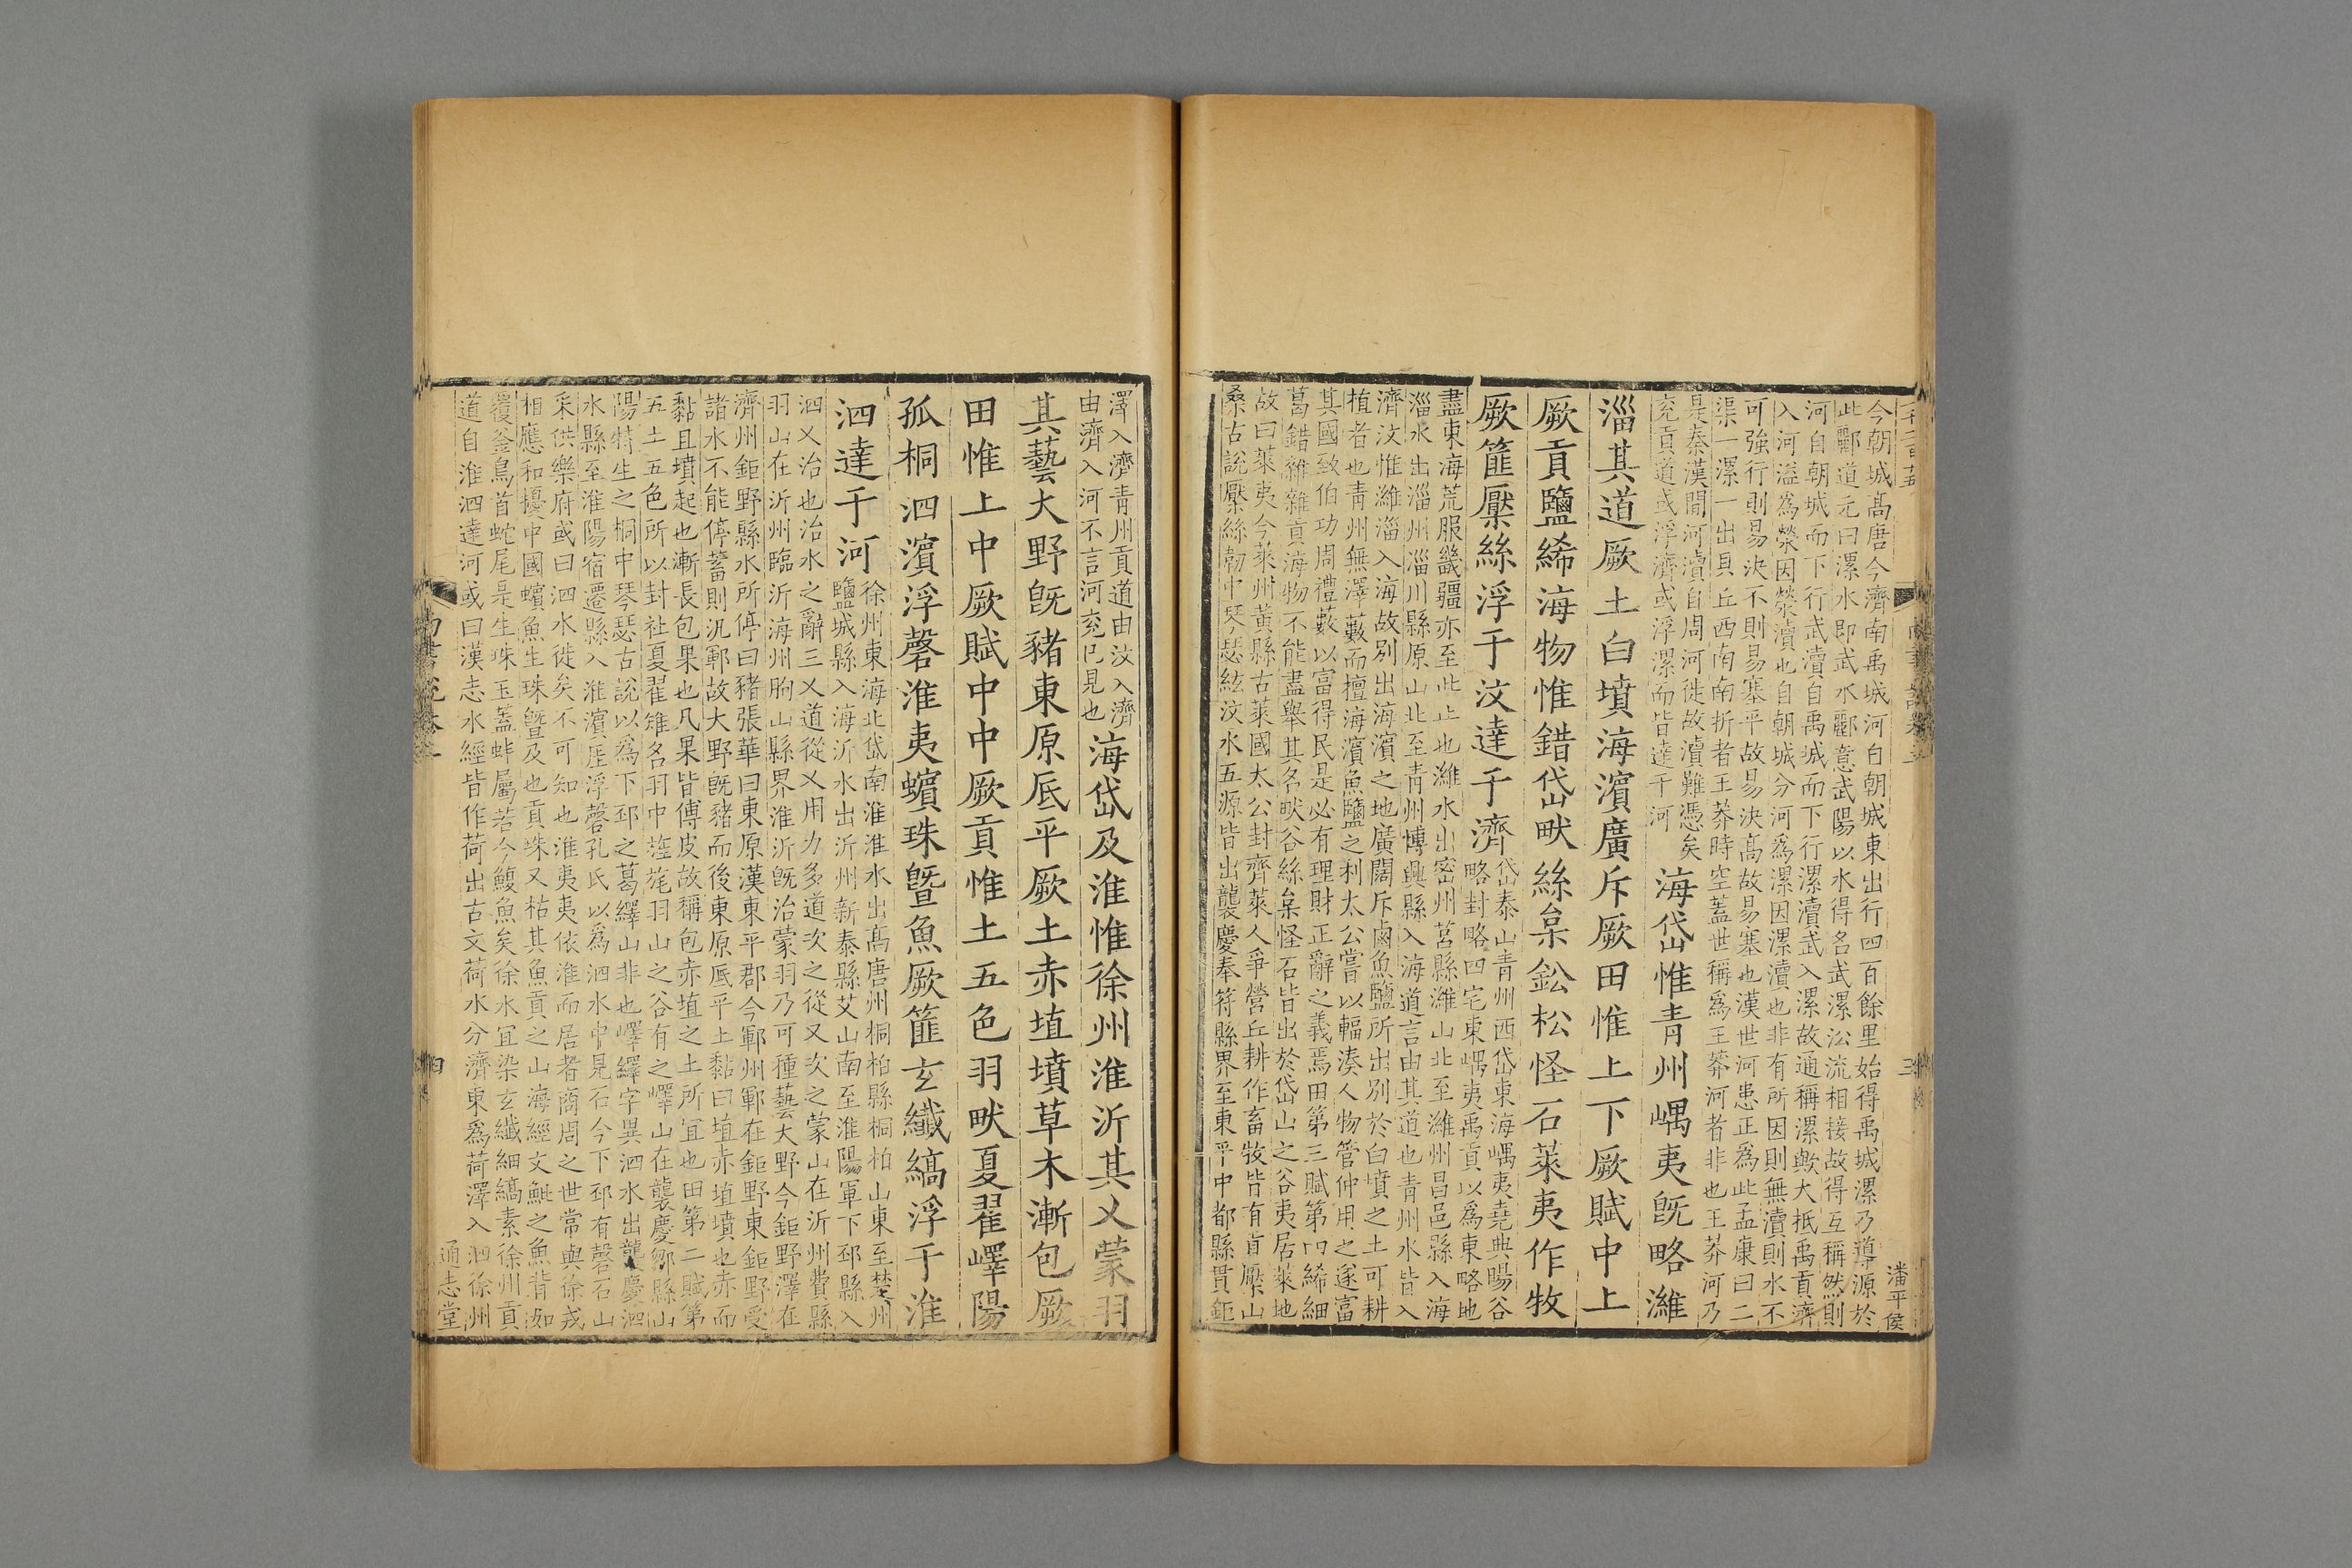 今朝城高唐今濟南禹城河自朝城東出行四百餘里始得禹城漯乃導源於
此酈道元曰漯水即武水酈意武陽以水得名武漯㳂流相接故得互稱然則
河自朝城而下行武瀆自禹城而下行漯瀆武入漯故通稱漯歟大抵禹貢濟
入河溢為滎因滎瀆也自朝城分河為漯因漯瀆也非有所因則無瀆則水不
可強行則易決不則易塞平故易決高故易塞也漢世河患正為此孟康曰二
渠一漯一出貝丘西南南折者王莽時空蓋世稱為王莽河者非也王莽河乃
是秦漢間河瀆自周河徙故瀆難憑矣
兖貢道或浮濟或浮漯而皆達于河
海岱惟青州嵎夷旣略濰
淄其道厥土白墳海濱廣斥厥田惟上下厥賦中上
厥貢鹽絺海物惟錯岱畎絲枲鈆松怪石萊夷作牧
厥篚檿絲浮于汶達于濟
岱泰山青州西岱東海嵎夷堯典暘谷
略封略四宅東嵎夷禹貢以為東略地
盡東海荒服畿疆亦至此止也濰水出密州莒縣濰山北至濰州昌邑縣入海
淄水出淄州淄川縣原山北至青州博興縣入海道言由其道也青州水皆入
濟汶惟濰淄入海故別出海濱之地廣闊斥鹵魚鹽所出別於白墳之土可耕
植者也青州無澤藪而擅海濱魚鹽之利太公嘗以輻湊人物管仲用之遂富
其國致伯功周禮藪以富得民是必有理財正辭之義焉田第三賦第四絺細
葛錯雜雜貢海物不能盡舉其名畎谷絲枲怪石皆出於岱山之谷夷居萊地
故曰萊夷今萊州黃縣古萊國太公封齊萊人爭營丘耕作畜牧皆有貢檿山
桑古說檿絲韌中琴瑟絃汶水五源皆出襲慶奉符縣界至東平中都縣貫鉅
潘平侯
三
澤入濟青州貢道由汶入濟
由濟入河不言河兖已見也
海岱及淮惟徐州淮沂其乂蒙羽
其藝大野旣豬東原底平厥土赤埴墳草木漸包厥
田惟上中厥賦中中厥貢惟土五色羽畎夏翟嶧陽
孤桐泗濱浮磬淮夷蠙珠曁魚厥篚玄纖縞浮于淮
泗達于河
徐州東海北岱南淮淮水出高唐州桐柏縣桐柏山東至楚州
鹽城縣入海沂水出沂州新泰縣艾山南至淮陽軍下邳縣入
泗乂治也治水之辭三乂道從乂用力多道次之從又次之蒙山在沂州費縣
羽山在沂州臨沂海州朐山縣界淮沂旣治蒙羽乃可種藝大野今鉅野澤在
濟州鉅野縣水所停曰豬張華曰東原漢東平郡今鄆州鄆在鉅野東鉅野受
諸水不能停蓄則汎鄆故大野旣豬而後東原底平土黏曰埴赤埴墳也赤而
黏且墳起也漸長包果也凡果皆傅皮故稱包赤埴之土所宜也田第二賦第
五土五色所以封社夏翟雉名羽中旌旄羽山之谷有之嶧山在襲慶鄒縣山
陽特生之桐中琴瑟古說以為下邳之葛繹山非也嶧繹字異泗水出襲慶泗
水縣至淮陽宿遷縣入淮濱厓浮磬孔氏以為泗水中見石今下邳有磬石山
采供樂府或曰泗水徙矣不可知也淮夷夷依淮而居者商周之世常與徐戎
相應和擾中國蠙魚生珠曁及也貢珠又枯其魚貢之山海經文魮之魚背如
覆釜鳥首蛇尾是生珠玉蓋蚌屬若今鰒魚矣徐水宜染玄纖細縞素徐州貢
道自淮泗達河或曰漢志水經皆作荷出古文荷水分濟東為荷澤入泗徐州
四
通志堂